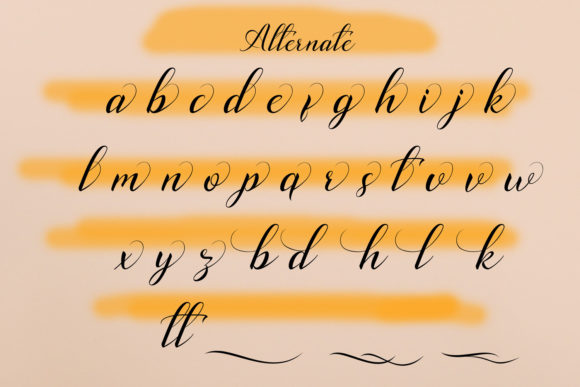 Alternate
a b c d e f g h i j k
l m n o p q r s t v v w
x y z b d h l k
tt